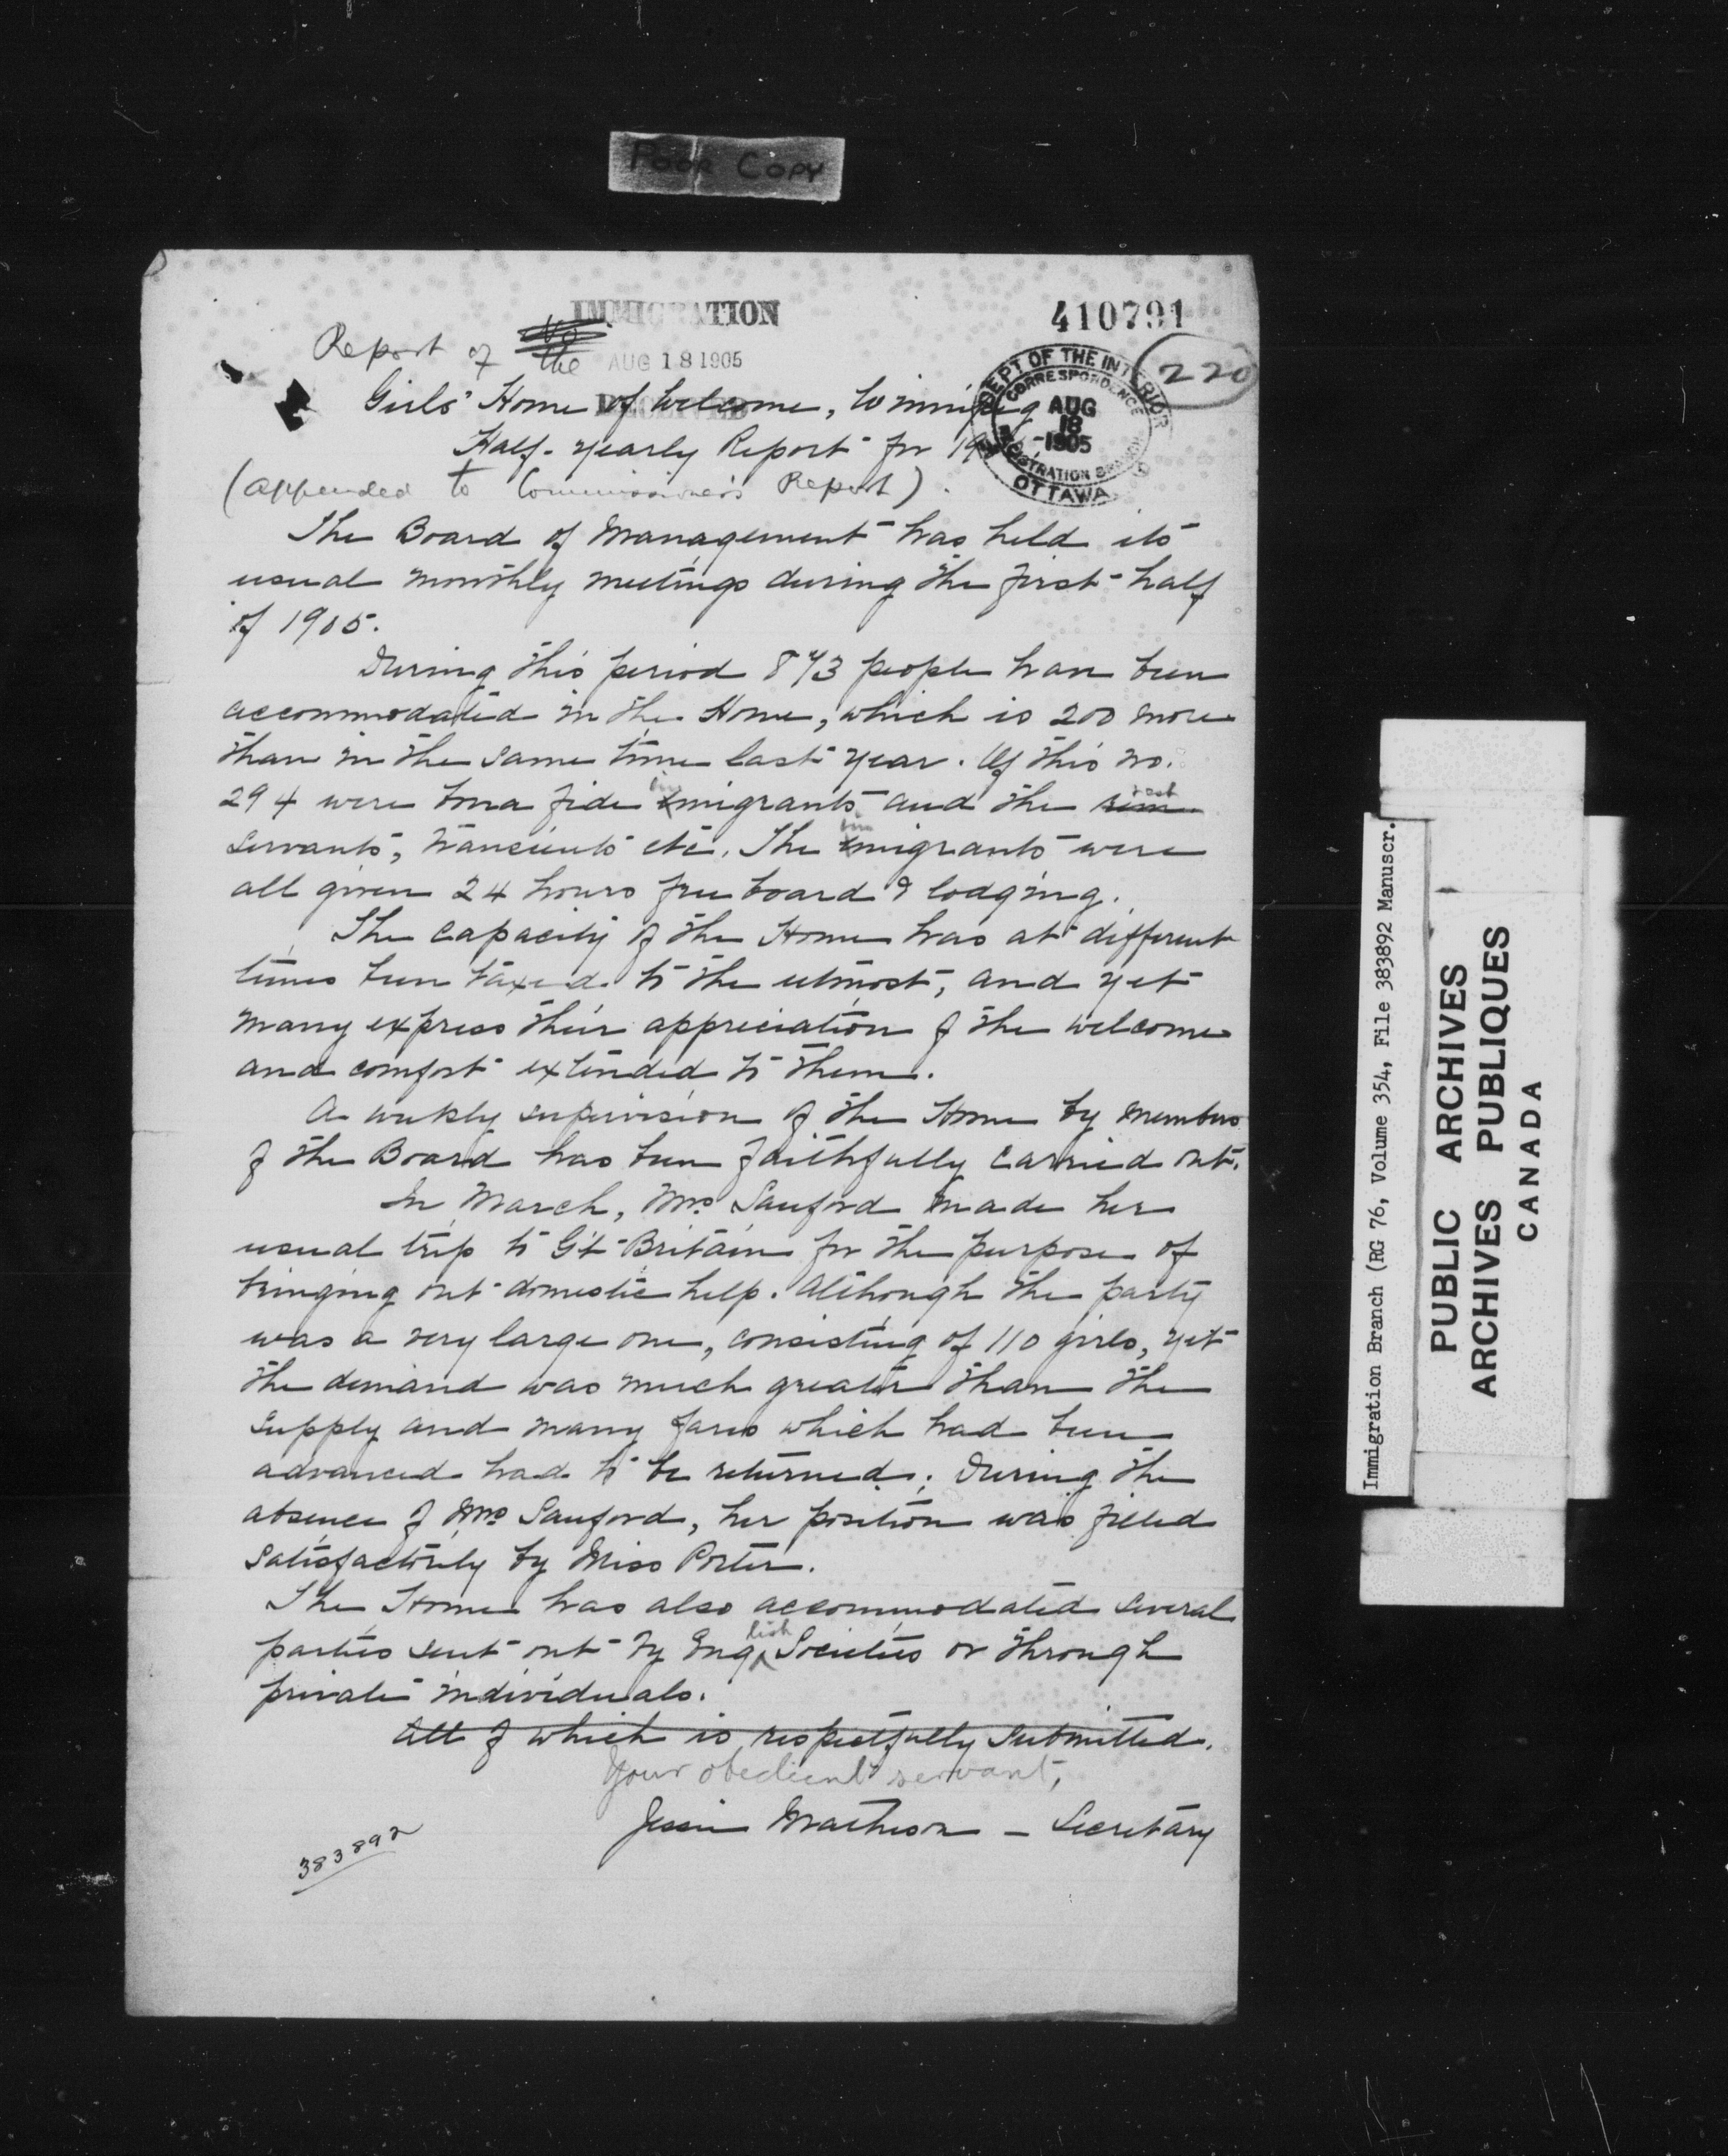 POOR COPY
IMMIGRATION
AUG 18 1905
RECEIVED
410791
220
DEPT OF THE INTERIOR
CORRESPONDENCE
AUG
18
1905
REGISTRATION BRANCH
OTTAWA
Report of the
Girls' Home of Welcome, Winnipeg
Half-yearly Report for
(appended to Commissioner's Report).
The Board of Management has held its
usual monthly meetings during the first half
of 1905.
During this period 873 people have been
accommodated in the Home, which is 200 more
than in the same time last year. Of this no.
294 were bona fide immigrants and the rest
servants, transients etc. The immigrants were
all given 24 hours free board & lodging.
The capacity of the Home has at different
times been taxed to the utmost, and yet
many express their appreciation of the welcome
and comfort extended to them.
A weekly supervision of the Home by members
of the Board has been faithfully carried out.
In March, Mrs. Sanford made her
usual trip to Gt Britain for the purpose of
bringing out domestic help. Although the party
was a very large one, consisting of 110 girls, yet
the demand was much greater than the
supply and many fares which had been
advanced had to be returned. During the
absence of Mrs Sanford, her position was filled
satisfactorily by Miss Porter.
The Home has also accommodated several
parties sent out by English Societies or through
private individuals.
All of which is respectfully submitted.
Your obedient servant,
Jessie Matheson - Secretary
383892
Immigration Branch (RG 76, Volume 354, File 383892 Manuscr.
PUBLIC ARCHIVES
ARCHIVES PUBLIQUES
CANADA